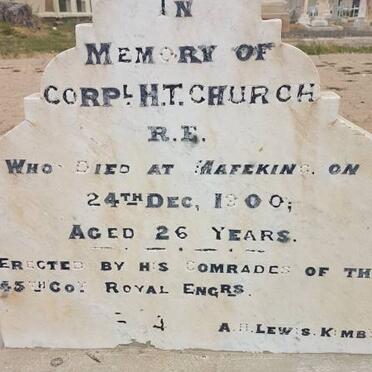 IN
MEMORY OF
CORPL H.T. CHURCH
R.E.
WHO DIED AT MAFEKING ON
24TH DEC, 1900,
AGED 26 YEARS.
ERECTED BY HIS COMRADES OF TH
45TH COY ROYAL ENGRS.
A.H. LEWIS. KIMB